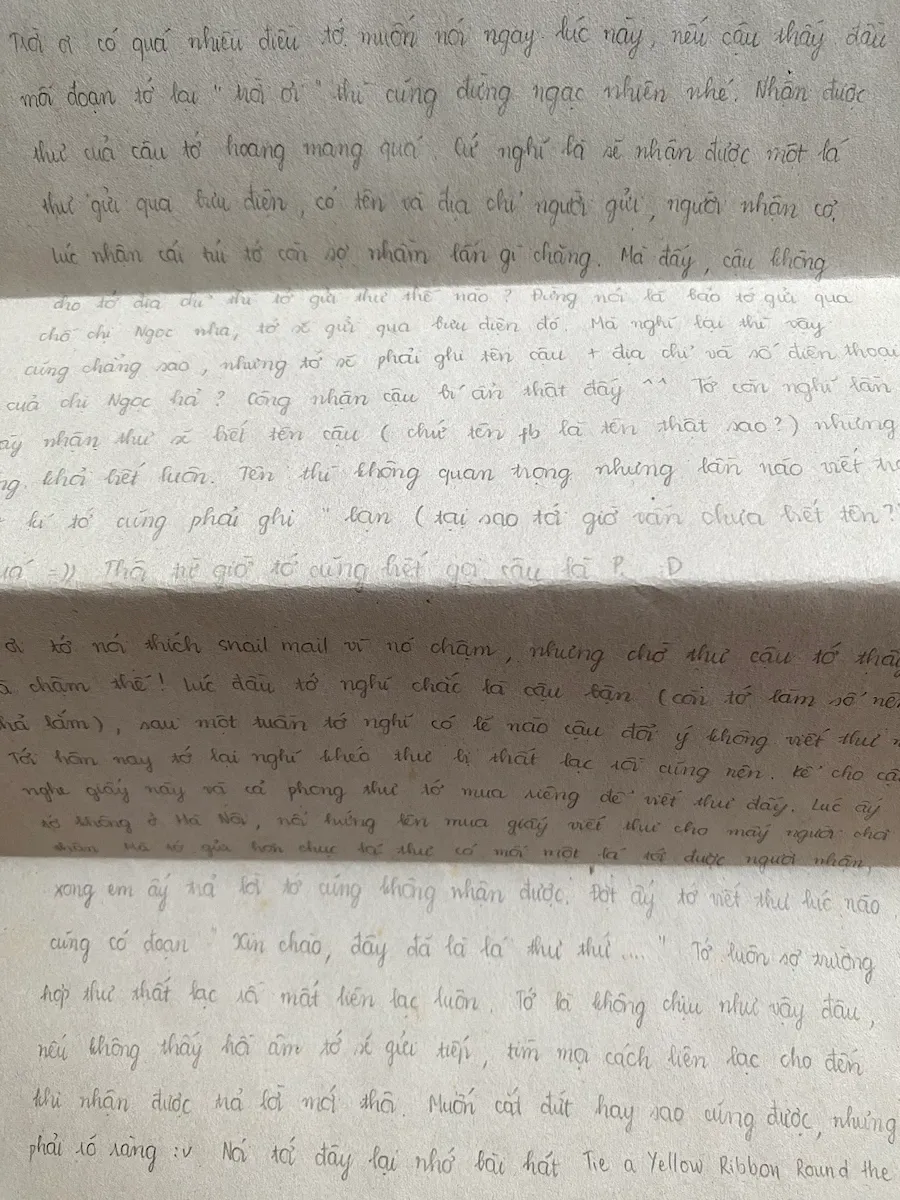 Trời ơi có quá nhiều điều tớ muốn nói ngay lúc này, nếu cậu thấy đầu
mỗi đoạn tớ lại "trời ơi" thì cũng đừng ngạc nhiên nhé. Nhận được
thư của cậu tớ hoang mang quá. Cứ nghĩ là sẽ nhận được một lá
thư gửi qua bưu điện, có tên và địa chỉ người gửi, người nhận cơ.
Lúc nhận cái túi tớ còn sợ nhầm lẫn gì chăng. Mà đấy, cậu không
cho tớ địa chỉ thì tớ gửi thư thế nào? Đừng nói là bảo tớ gửi qua
chỗ chị Ngọc nha, tớ sẽ gửi qua bưu điện đó. Mà nghĩ lại thì vậy
cũng chẳng sao, nhưng tớ sẽ phải ghi tên cậu + địa chỉ và số điện thoại
của chị Ngọc hả? Công nhận cậu bí ẩn thật đấy ^^ Tớ còn nghĩ lần
nhận thư sẽ biết tên cậu (chứ tên fb là tên thật sao?) nhưng
khỏi biết luôn. Tên thì không quan trọng nhưng lần nào viết
kí tớ cũng phải ghi "bạn (tại sao tới giờ vẫn chưa biết tên?
=)) Thôi từ giờ tớ cũng biết gọi cậu là P. :D
ơi tớ nói thích snail mail vì nó chậm, nhưng chờ thư cậu tớ
chậm thế! Lúc đầu tớ nghĩ chắc là cậu bận (còn tớ làm số
lắm), sau một tuần tớ nghĩ có lẽ nào cậu đổi ý không viết thư
Tới hôm nay tớ lại nghĩ khéo thư bị thất lạc rồi cũng nên. Kể cho
nghe giấy này và cả phong thư tớ mua riêng để viết thư đấy. Lúc ấy
tớ không ở Hà Nội, nổi hứng lên mua giấy viết thư cho mấy người chơi
thân. Mà tớ gửi hơn chục lá thư có mỗi một lá tới được người nhận,
xong em ấy trả lời tớ cũng không nhận được. Đợt ấy tớ viết thư lúc nào
cũng có đoạn "Xin chào, đây đã là lá thư thứ...." Tớ luôn sợ trường
hợp thư thất lạc rồi mất liên lạc luôn. Tớ là không chịu như vậy đâu,
nếu không thấy hồi âm tớ sẽ gửi tiếp, tìm mọi cách liên lạc cho đến
khi nhận được trả lời mới thôi. Muốn cắt đứt hay sao cũng được, nhưng
phải rõ ràng :v Nói tới đây lại nhớ bài hát Tie a Yellow Ribbon Round the